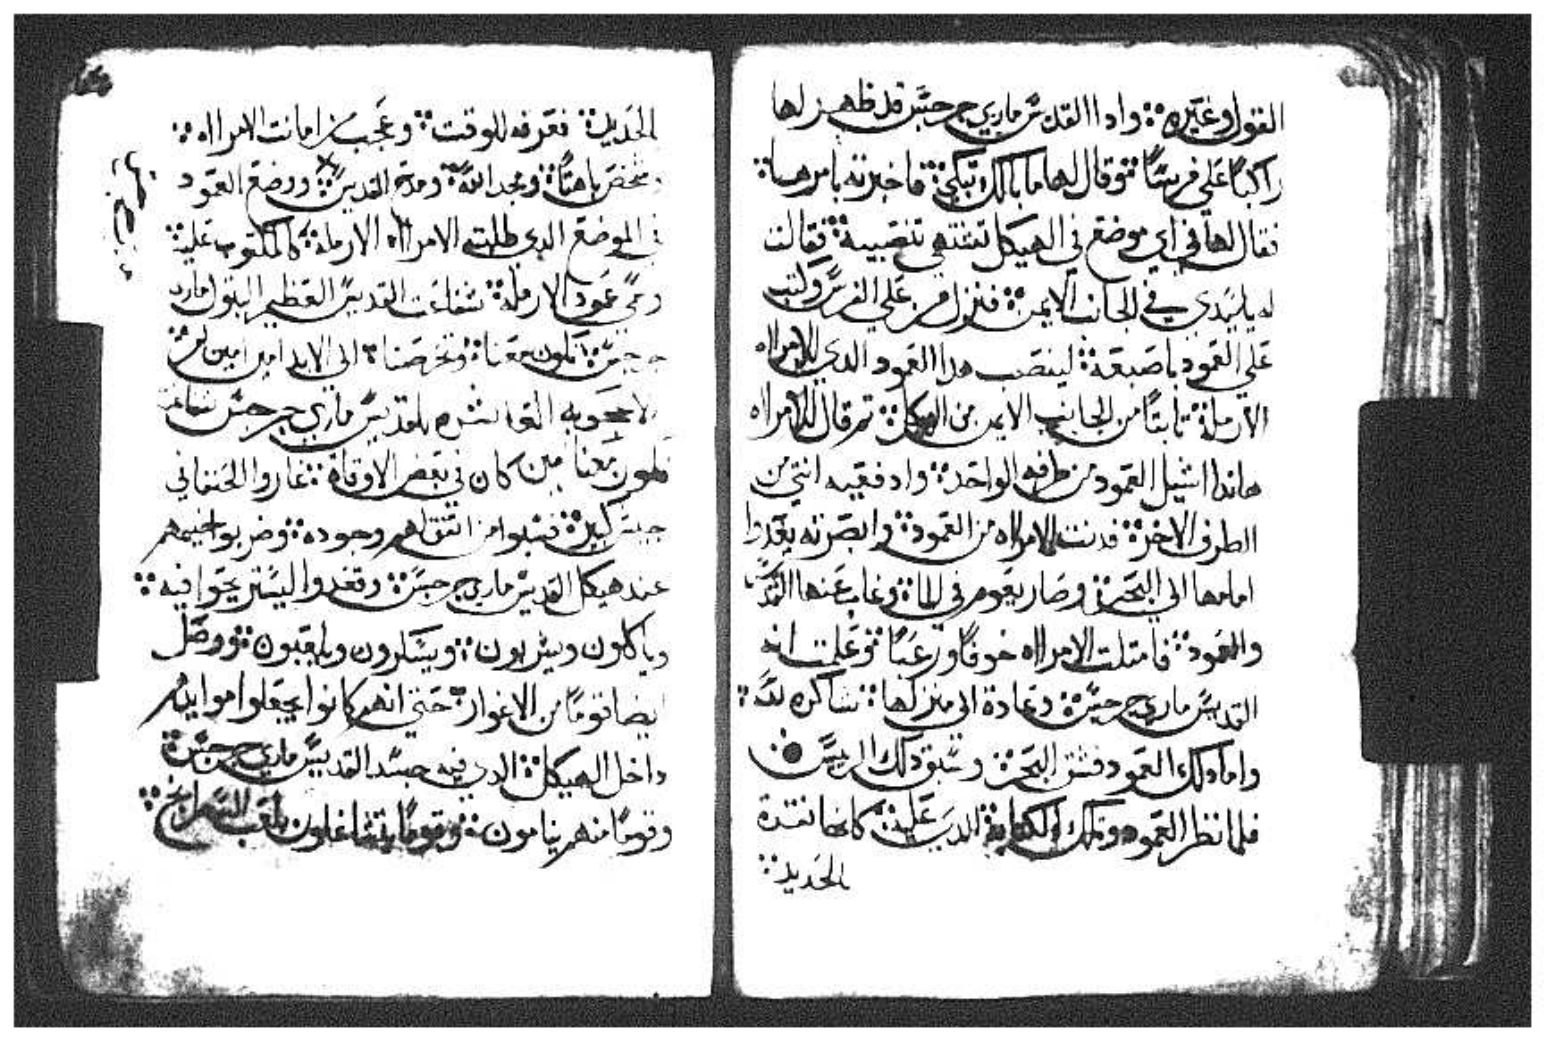 القول وغيره܀ وادا القديس ماري جرجس قد ظهر لها
راكبًا علي فرسًا܀ وقال لها ما بالك تبكي܀ فاخبرته بامرها܀
فقال لها في اي موضع في الهيكل تشتهي تنصبيه܀ فقالت
له يا سيدي في الجانب الايمن܀ فنزل من علي الفرس وكتب
علي العمود باصبعه܀ لينصب هدا العمود الدي للامراه
الارملة܀ تابتًا من الجانب الايمن من الهيكل܀ تم قال للامراه
هاندا اشيل العمود من طرفه الواحد܀ وادفعيه انتي من
الطرف الاخر܀ فدنت الامراه من العمود܀ وابصرته يغدوا
امامها الي البحر܀ وصار يعوم في الما܀ وغاب عنها القديس
والعمود܀ فامتلت الامراه خوفًا ورعبًا܀ وعلمت انه
القديس ماري جرجس܀ وعادة الي منزلها܀ شاكره لله܀
واما دلك العمود فشق البحر܀ وسبق دلك الريس܀
فلما نظر العمود وتلك الكتابه الدي عليه܀ كانها نقشة
الحديد܀
الحديد܀ فعرفه للوقت܀ وعجب من امانت الامراه܀
وشخص باهتًا܀ ومجد الله܀ ومدح القديس܀ ووضع العمود
في الموضع الدي طلبته الامراه الارملة܀ كالمكتوب عليه܀
ودعي عمود الارملة܀ شفاعت القديس العظيم البتول ماري
جرجس܀ تكون معنا܀ وتحرصنا܀ الي الابد امين امين
الاعجوبه التي القديس ماري جرجس شفاعته
تكون معنا امين كان في بعض الاوقاة܀
عند هيكل القديس ماري جرجس܀ وقعدوا ليستريحوا فيه܀
وياكلون ويشربون܀ ويسكرون ويلعبون܀ ووصل
ايضا قومًا من الاغوار܀ حتي انهم كانوا يجعلوا موايدهم
داخل الهيكل܀ الدي فيه جسد القديس ماري جرجس܀
وقومًا منهم ينامون܀ وقومًا يتشاغلون بلعب الشطرنج܀